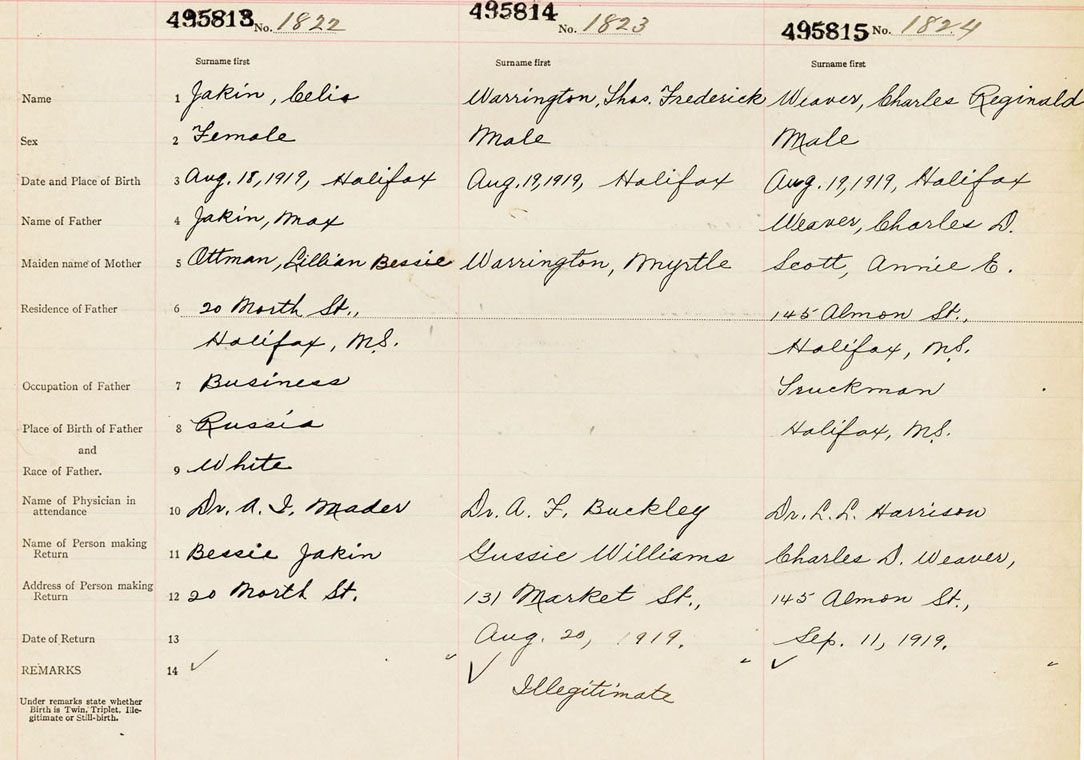 495813 No. 1822 495814 No. 1823 495815 No. 1824
Surname first Surname first Surname first
Name 1 Jakin, Celia Warrington, Thos. Frederick Weaver, Charles Reginald
Sex 2 Female Male Male
Date and Place of Birth 3 Aug. 18, 1919, Halifax Aug. 19, 1919, Halifax Aug. 19, 1919, Halifax
Name of Father 4 Jakin, Max Weaver, Charles D.
Maiden name of Mother 5 Ottman, Lillian Bessie Warrington, Myrtle Scott, Annie E.
Residence of Father 6 20 North St., 145 Almon St.,
Halifax, N.S. Halifax, N.S.
Occupation of Father 7 Business Truckman
Place of Birth of Father 8 Russia Halifax, N.S.
and
Race of Father. 9 White
Name of Physician in
attendance 10 Dr. A. I. Mader Dr. A. F. Buckley Dr. L. L. Harrison
Name of Person making
Return 11 Bessie Jakin Gussie Williams Charles D. Weaver,
Address of Person making
Return 12 20 North St. 131 Market St., 145 Almon St.,
Date of Return 13 Aug. 20, 1919. Sep. 11, 1919.
REMARKS 14 ✓ ✓ ✓
Illegitimate
Under remarks state whether
Birth is Twin, Triplet, Ille-
gitimate or Still-birth.